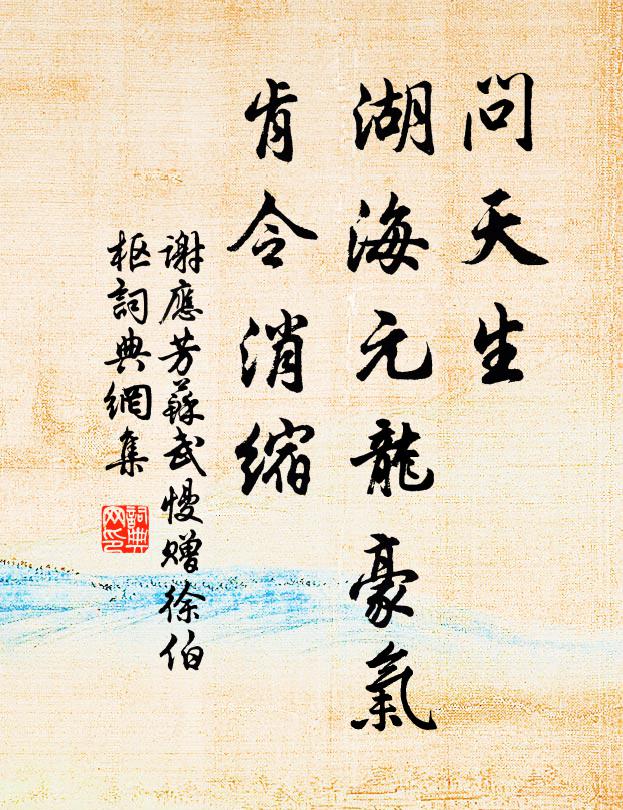 问天生
湖海元龍豪氣
肯令消縮
謝應芳蘇武慢贈徐伯
枢詞典網集
詞典
网印